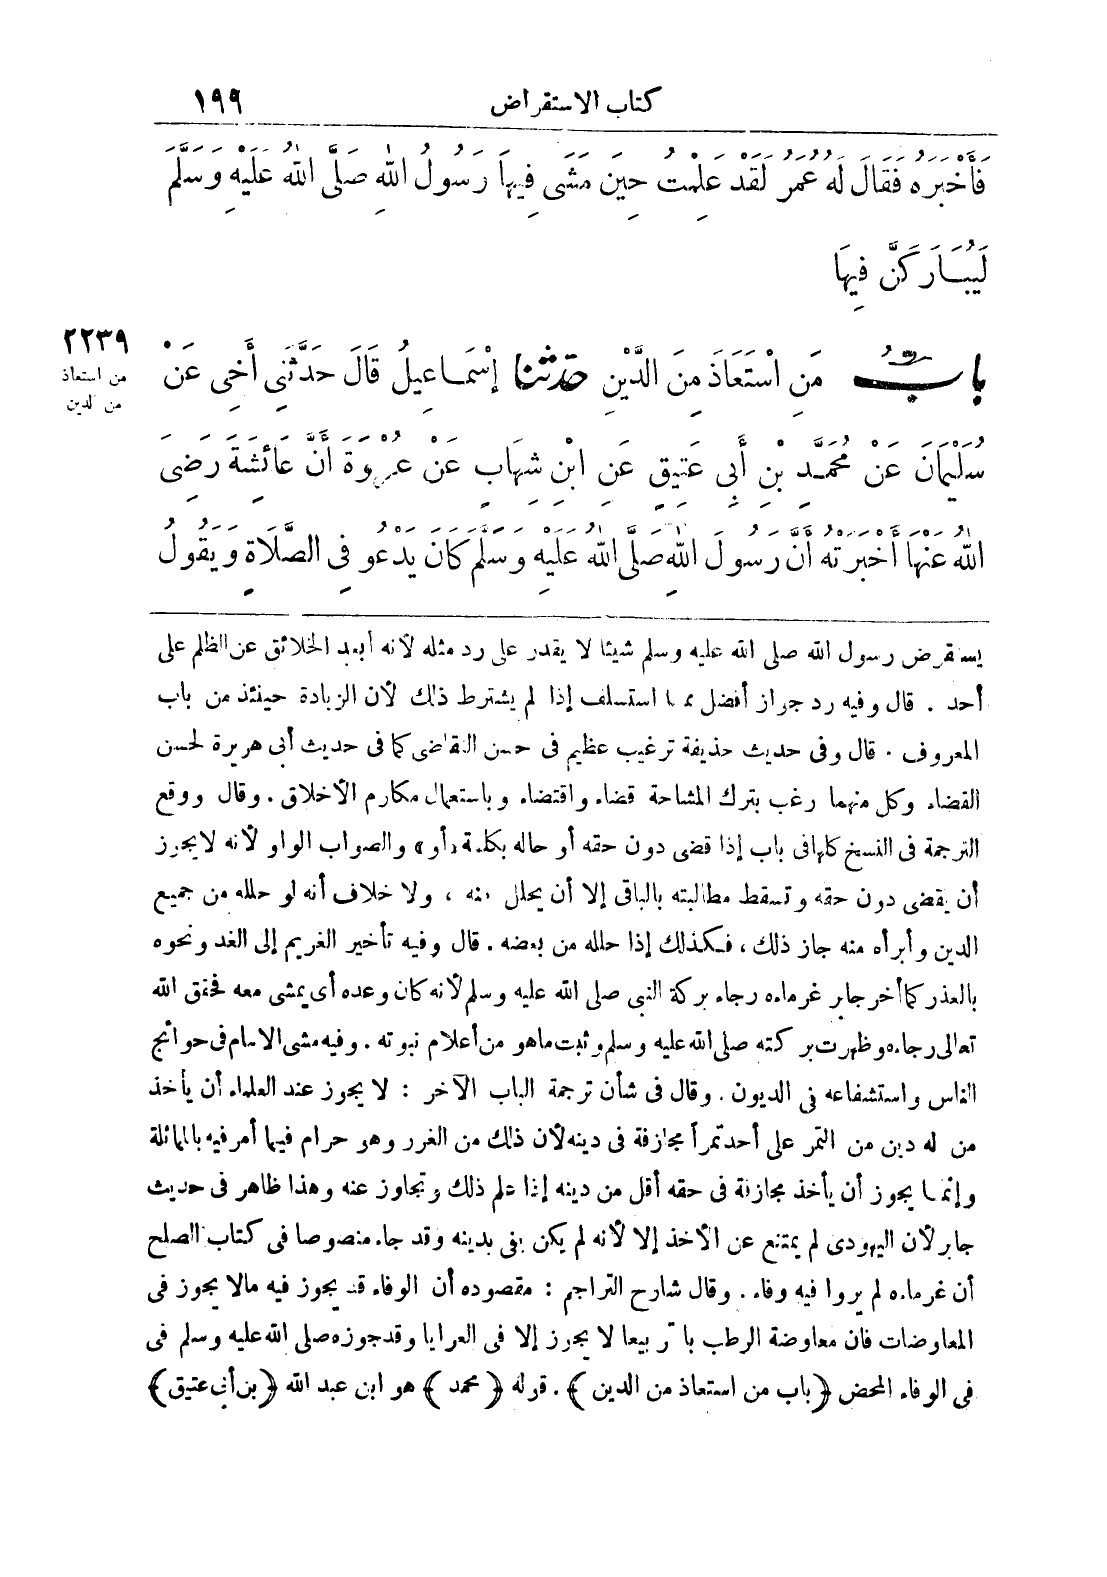 كتاب الاستقراض ١٩٩
فَأَخْبَرَهُ فَقَالَ لَهُ عُمَرُ لَقَدْ عَلِمْتُ حِينَ مَشَى فِيهَا رَسُولُ اللهِ صَلَّى اللهُ عَلَيْهِ وَسَلَّمَ
لَيُبَارَكَنَّ فِيهَا
بابُ مَنِ اسْتَعَاذَ مِنَ الدَّيْنِ حدثنا إِسْمَاعِيلُ قَالَ حَدَّثَنِي أَخِي عَنْ
٢٢٣٩
من استعاذ
من الدين
سُلَيْمَانَ عَنْ مُحَمَّدِ بْنِ أَبِي عَتِيقٍ عَنِ ابْنِ شِهَابٍ عَنْ عُرْوَةَ أَنَّ عَائِشَةَ رَضِيَ
اللهُ عَنْهَا أَخْبَرَتْهُ أَنَّ رَسُولَ اللهِ صَلَّى اللهُ عَلَيْهِ وَسَلَّمَ كَانَ يَدْعُو فِي الصَّلَاةِ وَيَقُولُ
يستقرض رسول الله صلى الله عليه وسلم شيئا لا يقدر على رد مثله لأنه أبعد الخلائق عن الظلم على
أحد . قال وفيه رد جراز أفضل مما استسلف إذا لم يشترط ذلك لأن الزيادة حينئذ من باب
المعروف . قال وفى حديث حذيفة ترغيب عظيم فى حسن التقاضى كما فى حديث أبى هريرة لحسن
القضاء وكل منهما رغب بترك المشاحة قضاء واقتضاء وباستعمال مكارم الأخلاق . وقال ووقع
الترجمة فى النسخ كلها فى باب إذا قضى دون حقه أو حاله بكلمة «أو» والصواب الواو لأنه لا يجوز
أن يقضى دون حقه وتسقط مطالبته بالباقى إلا أن يحلل منه ، ولا خلاف أنه لو حلله من جميع
الدين وأبرأه منه جاز ذلك ، فكذلك إذا حلله من بعضه . قال وفيه تأخير الغريم إلى الغد ونحوه
بالعذر كما أخر جابر غرماءه رجاء بركة النبى صلى الله عليه وسلم لأنه كان وعده أى يمشى معه فحقق الله
تعالى رجاءه وظهرت بركته صلى الله عليه وسلم وثبت ماهو من أعلام نبوته . وفيه مشى الامام فى حوائج
الناس واستشفاعه فى الديون . وقال فى شأن ترجمة الباب الآخر : لا يجوز عند العلماء أن يأخذ
من له دين من التمر على أحد تمراً مجازفة فى دينه لأن ذلك من الغرر وهو حرام فيما أمر فيه بالمماثلة
وإنما يجوز أن يأخذ مجازفة فى حقه أقل من دينه إذا علم ذلك وتجاوز عنه وهذا ظاهر فى حديث
جابر لأن اليهودى لم يمتنع عن الأخذ إلا لأنه لم يكن يفى بدينه وقد جاء منصوصا فى كتاب الصلح
أن غرماءه لم يروا فيه وفاء . وقال شارح التراجم : مقصوده أن الوفاء قد يجوز فيه مالا يجوز فى
المعاوضات فان معاوضة الرطب بالتمر بيعا لا يجوز إلا فى العرايا وقد جوزه صلى الله عليه وسلم فى
فى الوفاء المحض ﴿باب من استعاذ من الدين﴾ . قوله ﴿محمد﴾ هو ابن عبد الله ﴿بن أبى عتيق﴾